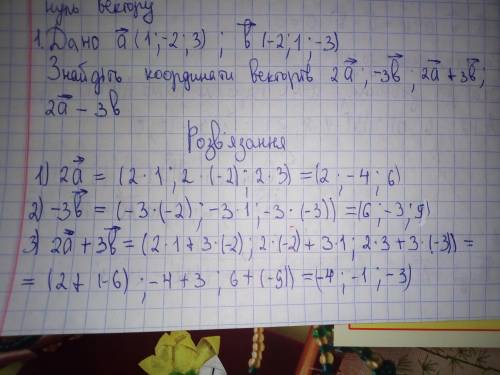 нуль вектору
1. Дано a⃗ (1;-2;3) ; b⃗ (-2;1;-3)
Знайдіть координати векторів 2a⃗ ; -3b⃗ ; 2a⃗ + 3b⃗ ;
2a⃗ - 3b
Розв'язання
1) 2a⃗ = (2·1 ; 2·(-2) ; 2·3) = (2 ; -4 ; 6)
2) -3b⃗ = (-3·(-2) ; -3·1 ; -3·(-3)) = (6 ; -3 ; 9)
3) 2a⃗ + 3b⃗ = (2·1 + 3·(-2) ; 2·(-2) + 3·1 ; 2·3 + 3·(-3)) =
= (2 + (-6) ; -4 + 3 ; 6 + (-9)) = (-4 ; -1 ; -3)